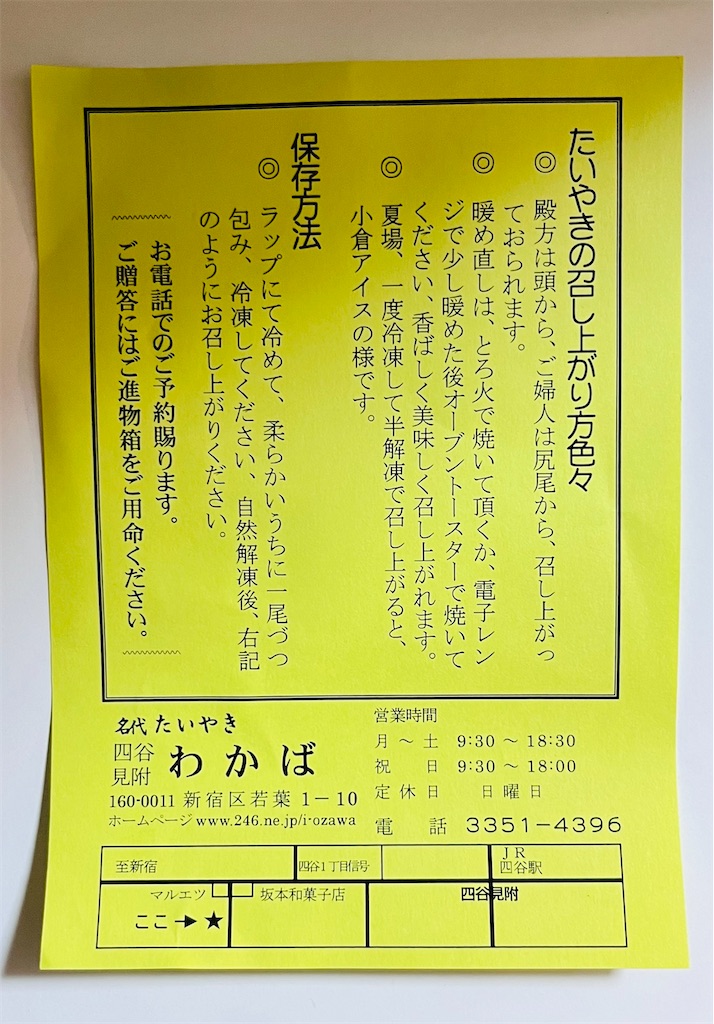 たいやきの召し上がり方色々
◎ 殿方は頭から、ご婦人は尻尾から、召し上がっ
ておられます。
◎ 暖め直しは、とろ火で焼いて頂くか、電子レン
ジで少し暖めた後オーブントースターで焼いて
ください、香ばしく美味しく召し上がれます。
◎ 夏場、一度冷凍して半解凍で召し上がると、
小倉アイスの様です。
保存方法
◎ ラップにて冷めて、柔らかいうちに一尾づつ
包み、冷凍してください、自然解凍後、右記
のようにお召し上がりください。
お電話でのご予約賜ります。
ご贈答にはご進物箱をご用命ください。
名代 たいやき
四谷見附 わかば
160-0011 新宿区若葉 1－10
ホームページ www.246.ne.jp/i-ozawa
営業時間
月 ～ 土 9:30 ～ 18:30
祝 日 9:30 ～ 18:00
定 休 日 日 曜 日
電 話 3351－4396
至新宿
四谷1丁目信号
ＪＲ
四谷駅
マルエツ
坂本和菓子店
四谷見附
ここ→★